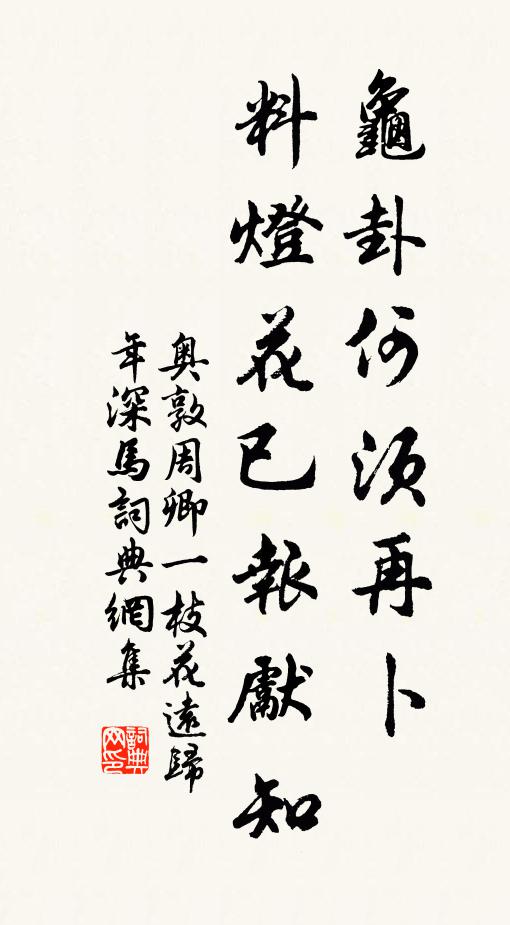 龜卦何須再卜
料燈花已報獻知
奥敦周卿一枝花遠歸
年深馬詞典網集
詞典网印